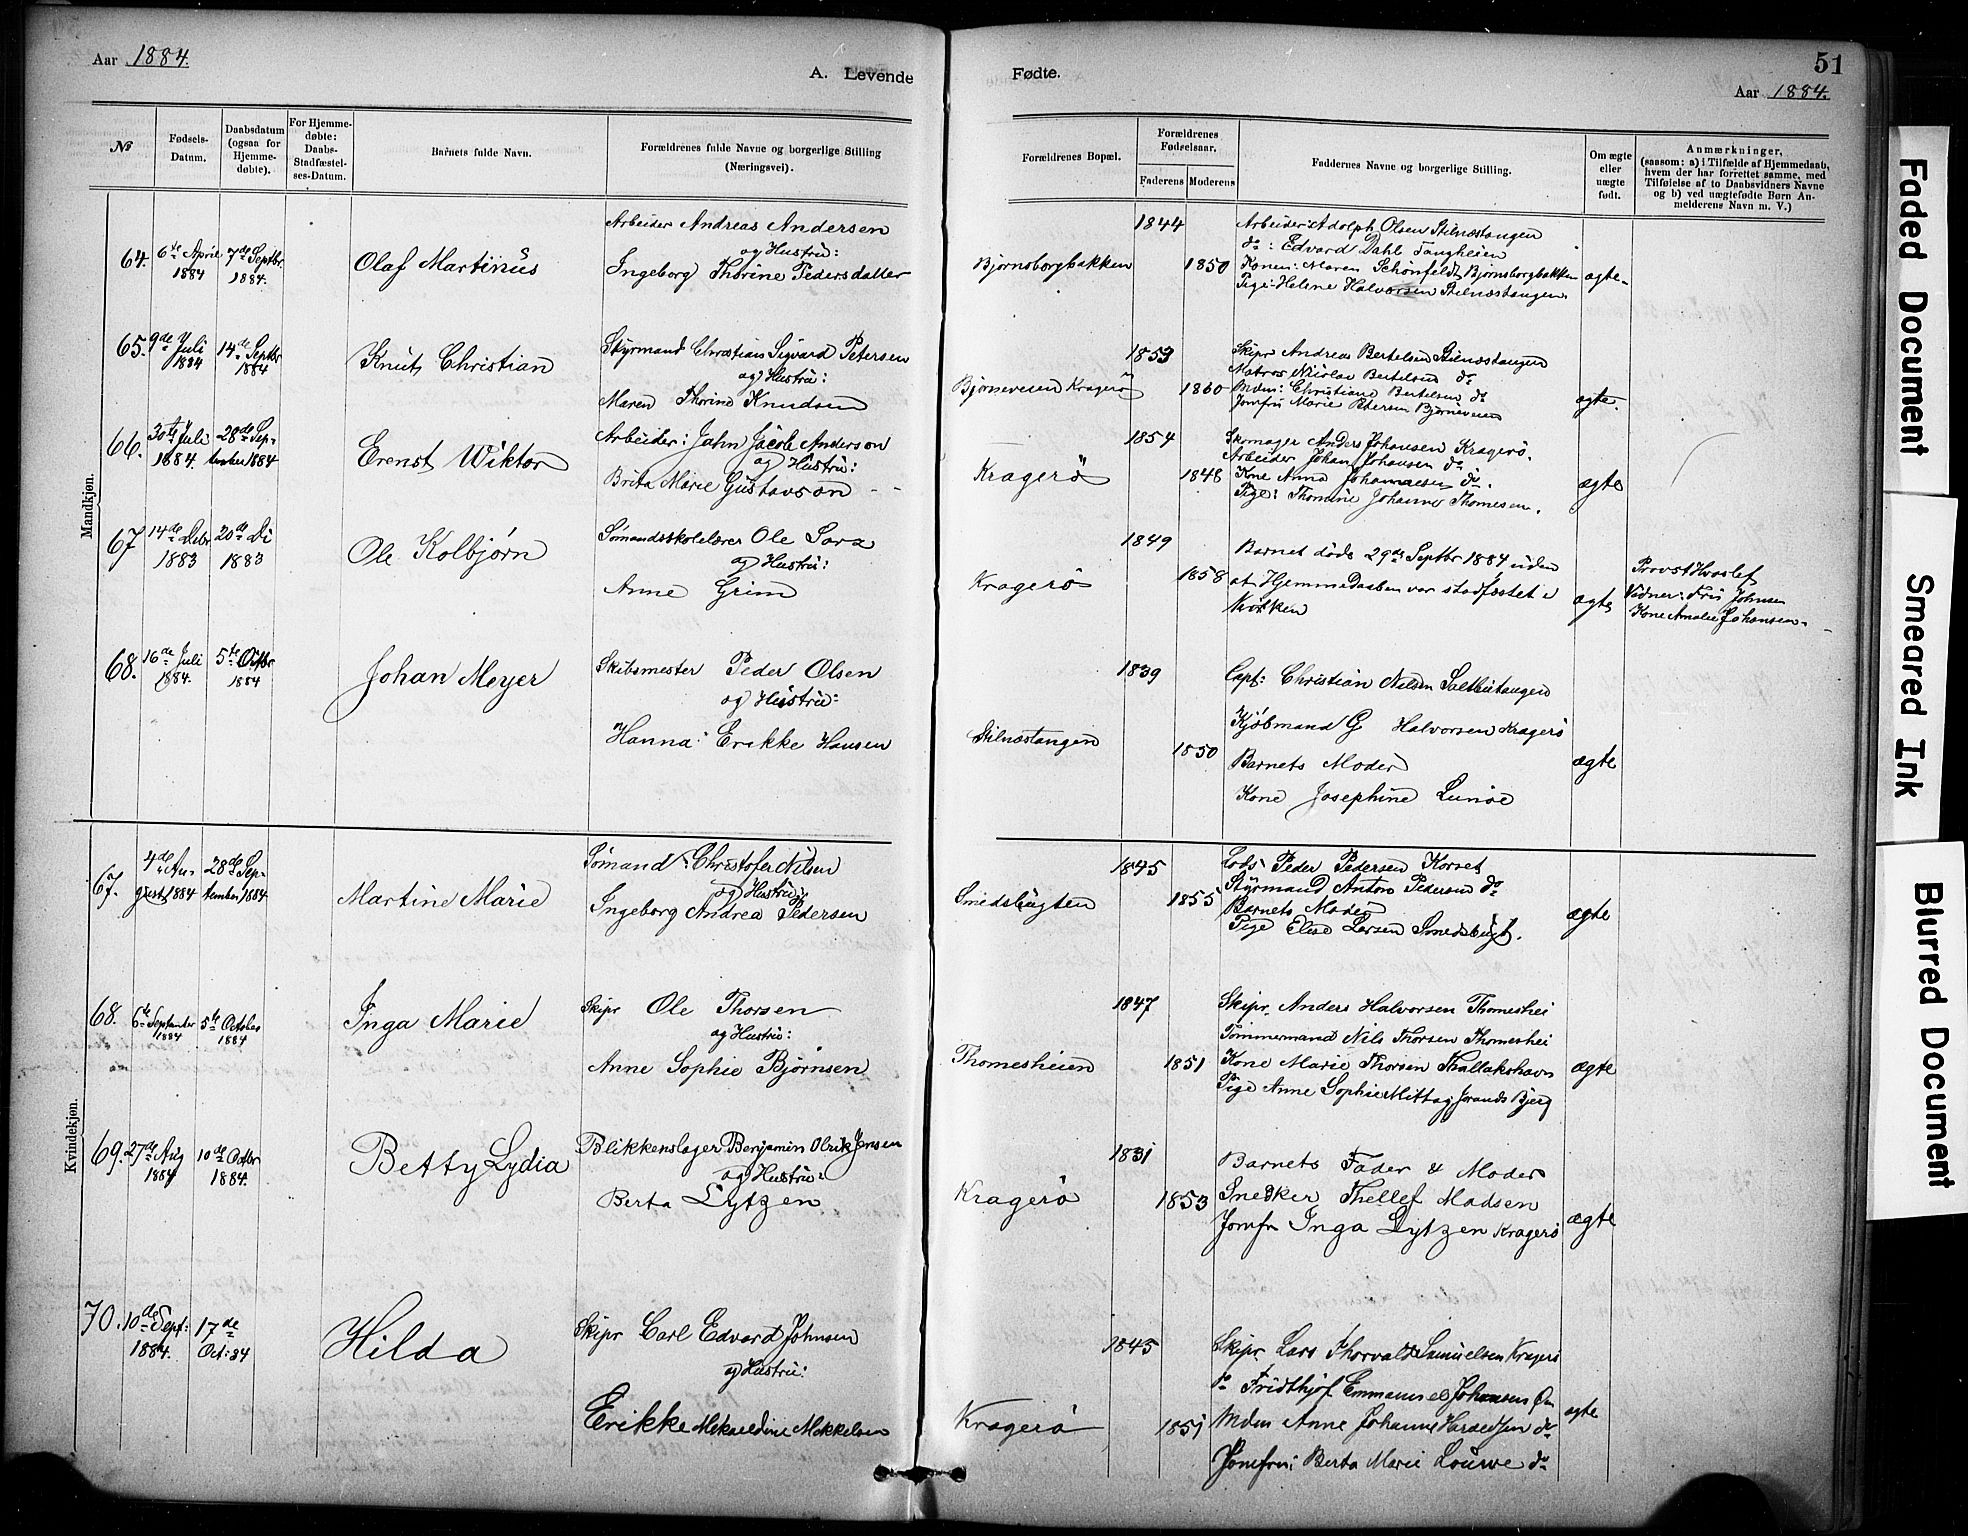 Aar 1884.
A. Levende Fødte.
51
Aar 1884.
№
Fødsels-Datum.
Daabsdatum (ogsaa for Hjemmedøbte).
For Hjemmedøbte: Daabs-Stadfæstelses-Datum.
Barnets fulde Navn.
Forældrenes fulde Navne og borgerlige Stilling (Næringsvei).
Forældrenes Bopæl.
Forældrenes Fødselsaar.
Faderens Moderens
Faddernes Navne og borgerlige Stilling.
Om ægte eller uægte født.
Anmærkninger, (saasom: a) i Tilfælde af Hjemmedaab, hvem der har forrettet samme, med Tilføielse af to Daabsvidners Navne og b) ved uægtefødte Børn Anmelderens Navn m. V.)
Mandkjøn.
64. 6te April 1884 7de Septbr 1884.
Olaf Martinus
Arbeider Andreas Andersen
og Hustru:
Ingeborg Thorine Pedersdatter
Bjørnsborgbakken
1844
1850
Arbeider: Adolph Olsen Stilnæstangen
do: Edvard Dahl Tangheien
Konen: Maren Schönfeldt Bjørnsborgbakken
Pige: Helene Halvorsen Stilnæstangen.
ægte
65. 9de Juli 1884 14de Septbr 1884
Knut Christian
Styrmand Christian Sigvard Petersen
og Hustru:
Maren Thorine Knudsen
Bjørneveien Kragerø
1853
1860
Skipr Andreas Bertelsen Stilnæstangen
Matros Nicolai Bertelsen do
Mdm: Christiane Bertelsen do
Jomfru Marie Petersen Bjørneveien
ægte.
66. 30te Juli 1884. 28de September 1884
Erenst Wiktor
Arbeider: John Jacob Anderson
og Hustru:
Brita Marie Gustavson
Kragerø
1854
1848
Skomager Anders Johansen Kragerø.
Arbeider Johan Johansen do
Kone Anna Johannesen do.
Pige: Thomine Johanne Thomesen.
ægte
67 14de Debr 1883 20de Di 1883
Ole Kolbjørn
Sømandsskolelærer Ole Lara
og Hustru:
Anne Grim
Kragerø
1849
1858
Barnet døde 29de Septbr 1884 uden
at Hjemmedaaben var stadfæstet i
Kirken
ægte
Provst Hvoslef
Vidner: Fru Johnsen
Kone Amalie Johansen
68. 16de Juli 1884. 5te Octbr 1884
Johan Meyer
Skibsmester Peder Olsen
og Hustru:
Hanna Erikke Hansen
Stilnæstangen
1839
1850
Capt: Christian Nilsen Saltbutangen
Kjøbmand G Halvorsen Kragerø
Barnets Moder
Kone Josephine Lunøe
ægte
Kvindekjøn.
67. 4de August 1884 28de September 1884
Martine Marie
Sømand Christofer Nilsen
og Hustru
Ingeborg Andrea Pedersen
Smedsbugten
1845
1855
Lods Peder Pedersen Korset
Styrmand Anton Pedersen do
Barnets Moder
Pige Elise Larsen Smedsbugt.
ægte
68. 6te September 1884 5te October 1884
Inga Marie
Skipr Ole Thorsen
og Hustru:
Anne Sophie Bjørnsen
Thomesheien
1847
1851
Skipr. Anders Halvorsen Thomeshei
Tømmermand Nils Thorsen Thomeshei
Kone Marie Thorsen Thallakshavn
Pige Anne Sophie Mittag Jorands Bjerg
ægte
69. 27de Aug 1884 10de Octbr 1884.
Betty Lydia
Blikkenslager Benjamin Olrik Jensen
og Hustru:
Berta Lytzen
Kragerø
1831
1853
Barnets Fader & Moder
Snedker Thellef Madsen
Jomfru Inga Lytzen Kragerø
ægte
70. 10de Sept: 1884. 17de Oct: 84
Hilda
Skipr Carl Edvard Johnsen
og Hustru:
Erikke Mekaeldine Mekkelsen
Kragerø
1845
1851
Skipr. Lars Thorvald Samuelsen Kragerø
do Fridthjof Emmanuel Johansen
Mdm Anne Johanne Haraldsen do
Jomfru: Berta Marie Louwe do
ægte
Faded Document
Smeared Ink
Blurred Document